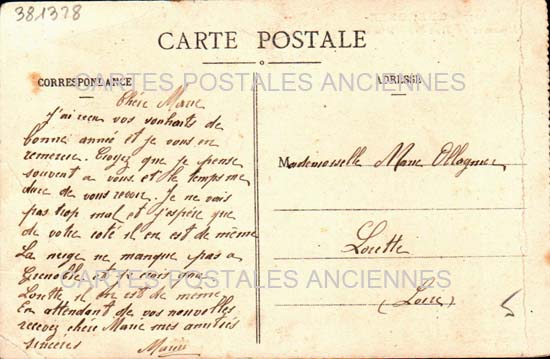 381378
CARTE POSTALE
CORRESPONDANCE
ADRESSE
CARTES POSTALES ANCIENNES
Chère Marie
J'ai reçu vos souhaits de
bonne année et je vous en
remercie. Croyez que je pense
souvent a vous et le temps me
dure de vous revoir. Je ne vais
pas trop mal et j'espère que
de votre coté il en est de même
La neige ne manque pas a
Grenoble et je crois qu'a
Lorette il en est de même
En attendant de vos nouvelles
recevez chère Marie mes amitiés
sincères
Marie
Mademoiselle Marie
Lorette
(Loire)
CARTES POSTALES ANCIENNES